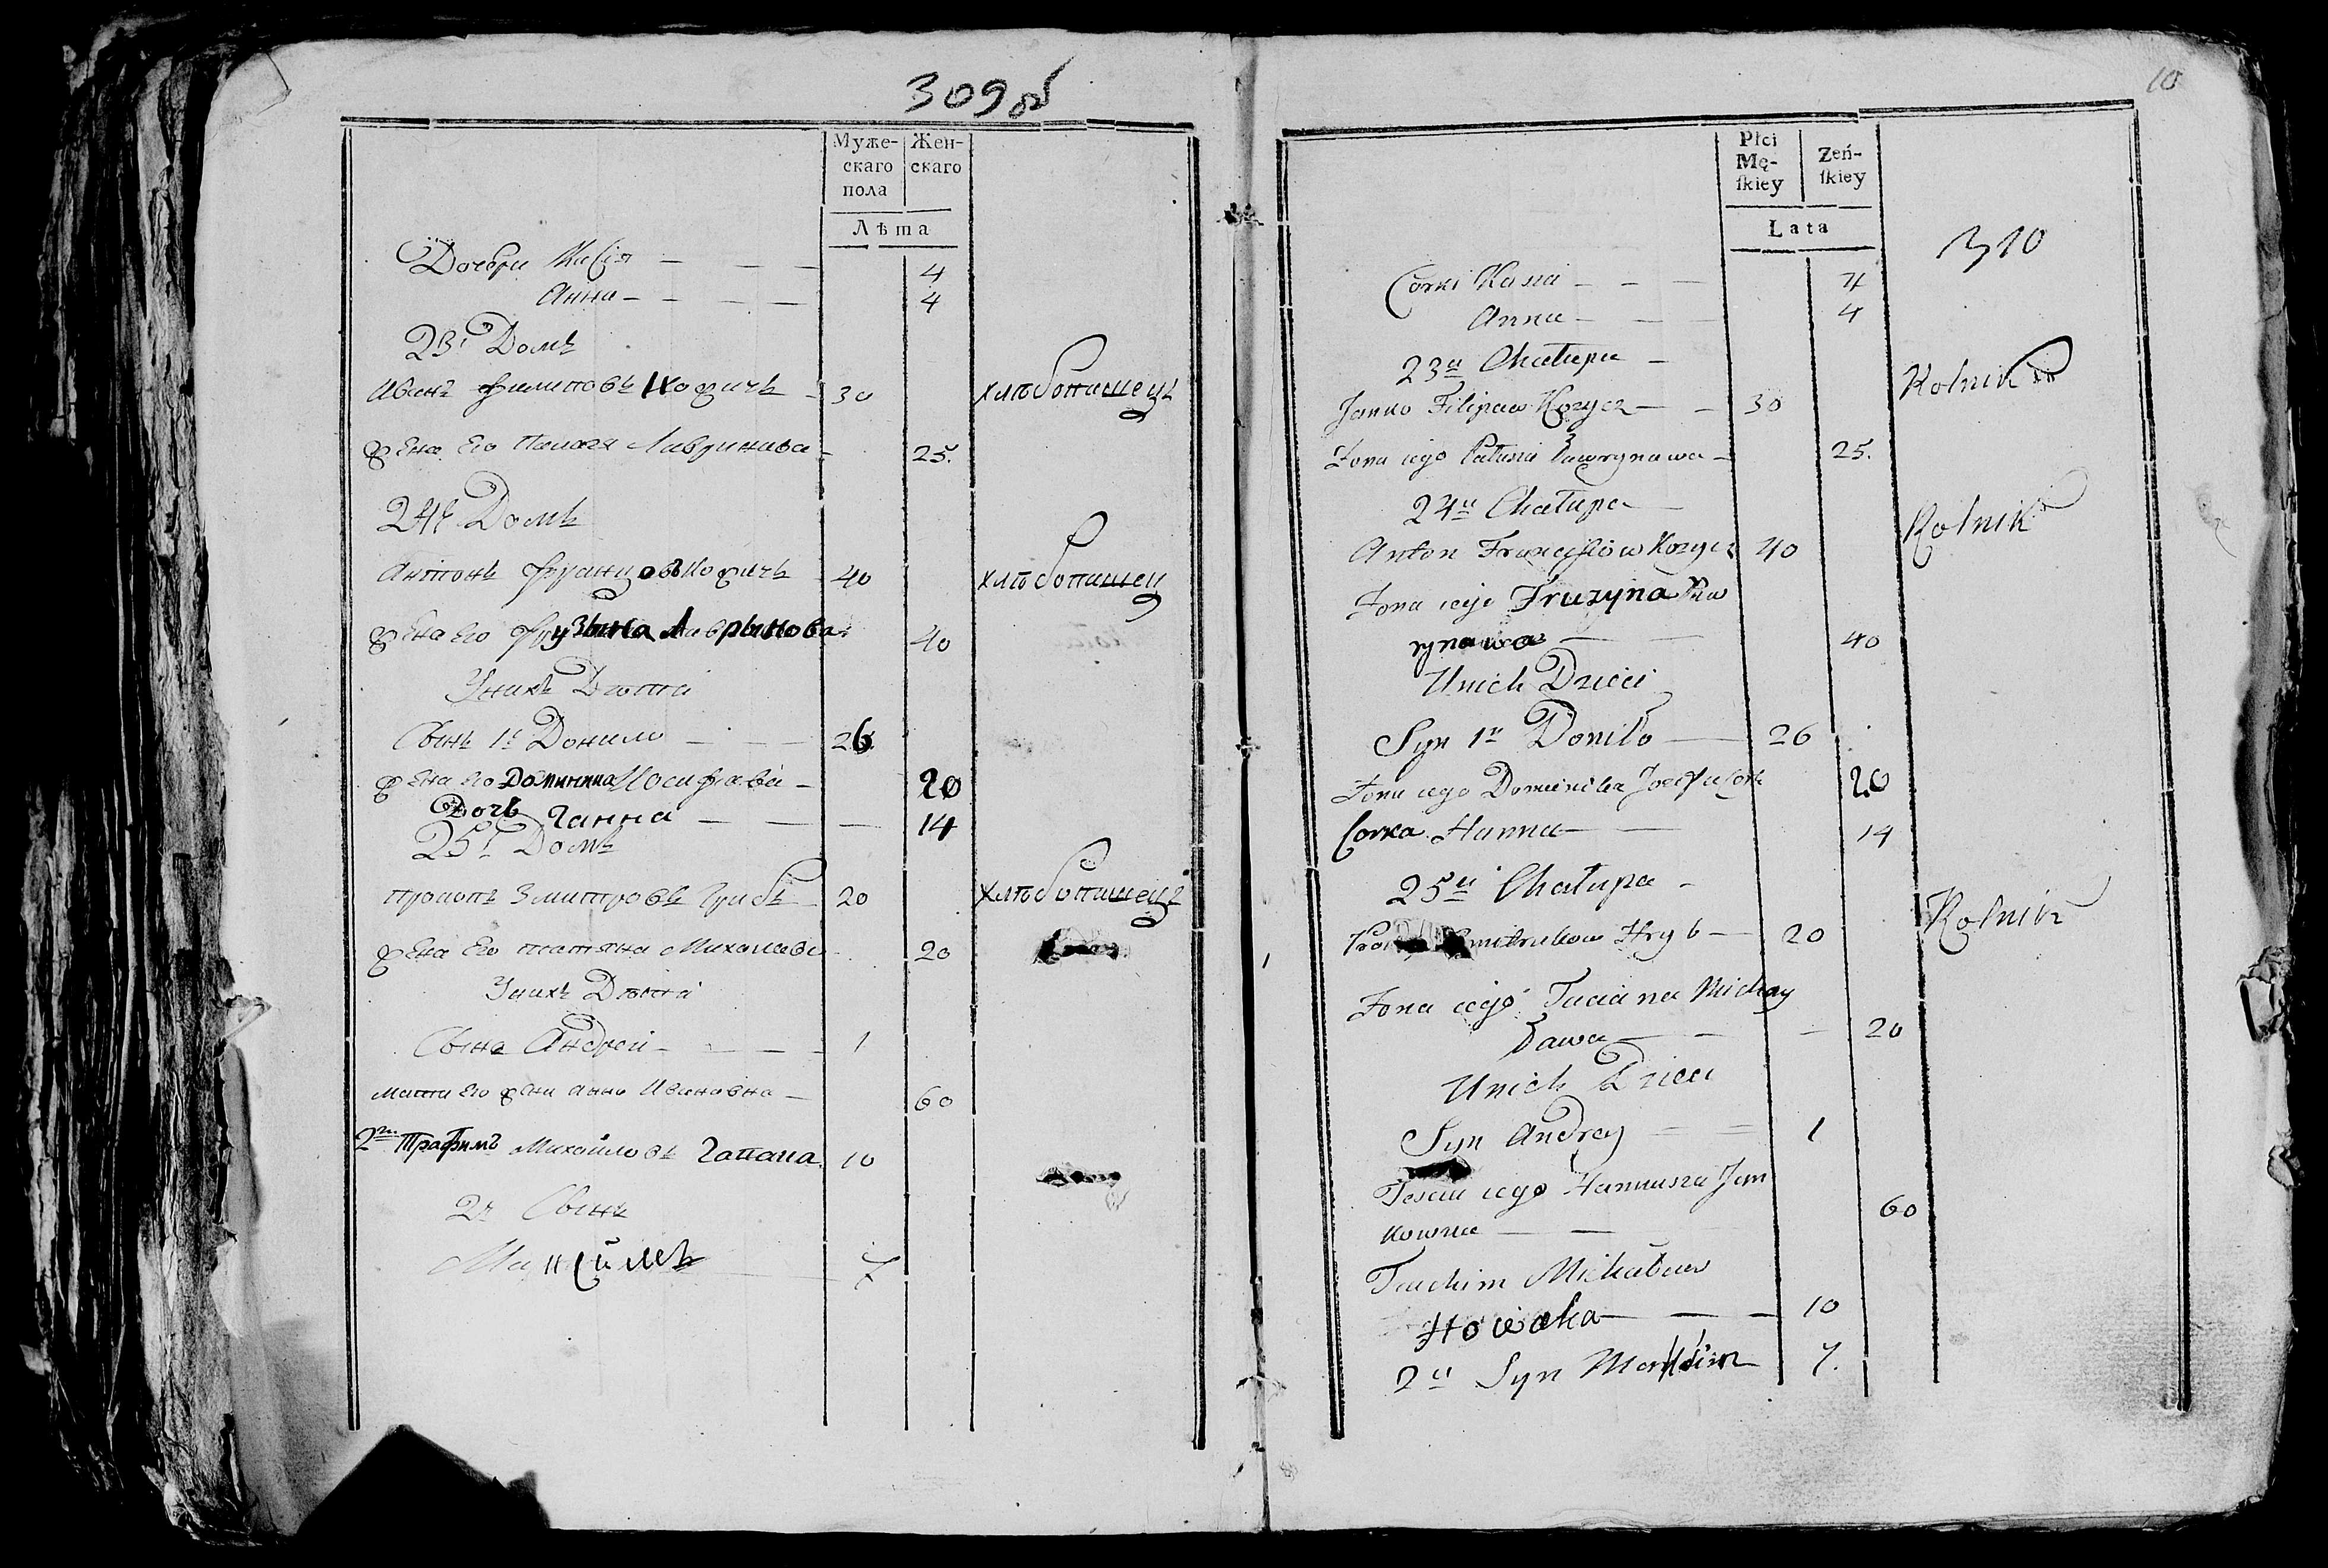 309 об
Муже-
скаго
пола
Жен-
скаго
Лѣта
Дочери Касiя — — — 4
Анна — — — — 4
23й Домъ
Иванъ Филиповъ Козичъ — 30 хлѣбопашецъ
Жена Его Палася Лавринава — 25.
24й Домъ
Антонъ Францовъ Козичъ — 40 хлѣбопашец
Жена Его Фрузына Лаврынова 40
У нихъ Дѣти
Сынъ 1й Данило — — — 26
Жена его Доминика Иосифава — 20
Дочь Ганна — — — 14
25й Домъ
Прокопъ Змитровъ Грибъ — 20 хлѣбопашецъ
Жена Его татяна Михалава 20
У нихъ Дѣти
Сынъ Андрей — — — 1
Мати Его жены Анна Ивановна — 60
2й Трафимъ Михайловъ 10
2й Сынъ
7
10
Płci
Mę-
ſkiey
Zeń-
ſkiey
Lata
310
Corki Kasia — — — 4
Anna — — — 4
23a Chałupa —
Janko Filipaw Kozycz — — 30 Rolnik
Zona iego Pałasia Ławrynawa — 25.
24a Chałupa —
Anton Franciszkow Kozycz 40 Rolnik
Zona iego Fruzyna Ław
rynawa — — 40
U nich Dzieci
Syn 1y Daniło — 26
Zona iego Dominika 20
Corka Hanna — — 14
25a Chałupa —
Hryb — 20 Rolnik
Zona iego Taciana Michay
ława — — — 20
U nich Dzieci
Syn Andrey — — 1
iego Hannusza Jan
kowna — — 60
Trachim Michałow
— — — 10
2i Syn 7.